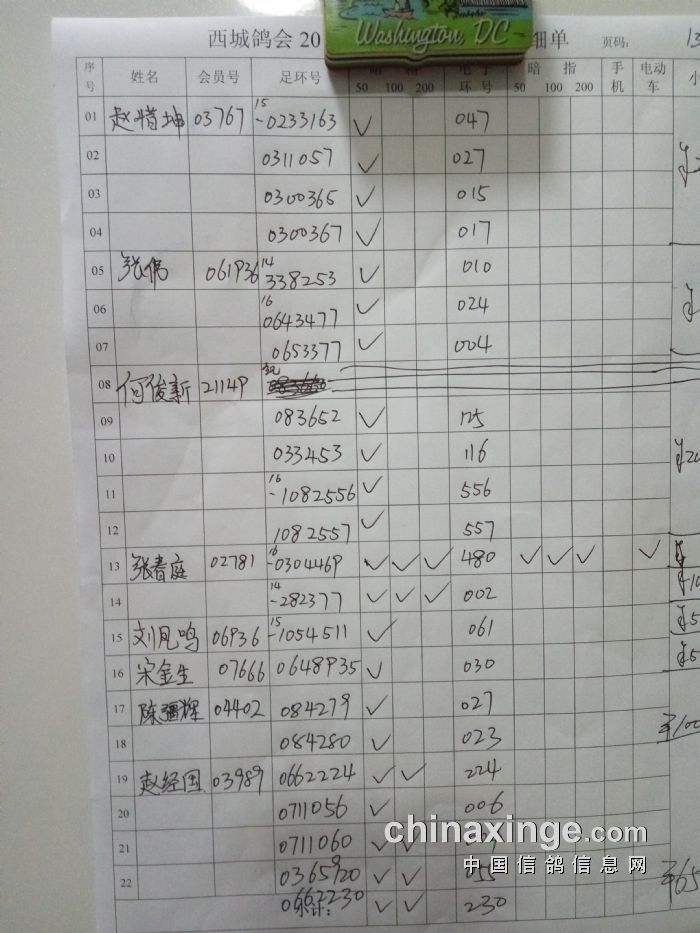 Washington, DC
西城鸽会 20 细单 页码: 13
序号 姓名 会员号 足环号 暗 指 电子环号 暗 指 手机 电动车 小
50 100 200 50 100 200
01 赵惜坤 03767 15-0233163 ✓ 047
02 0311057 ✓ 027
03 0300365 ✓ 015
04 0300367 ✓ 017
05 张伟 061936 14 338253 ✓ 010
06 16 0643477 ✓ 024
07 0653377 ✓ 004
08 何俊新 21149
09 083652 ✓ 125
10 033453 ✓ 116
11 16-1082556 ✓ 556
12 1082557 ✓ 557
13 张春庭 02781 16-0304469 ✓ ✓ ✓ 480 ✓ ✓ ✓ ✓
14 14-282377 ✓ ✓ ✓ 002
15 刘凤鸣 06936 15-1054511 ✓ 061
16 宋金生 07666 0648935 ✓ 030
17 陈强辉 04402 084279 ✓ 027
18 084280 ✓ 023
19 赵经国 03989 0662224 ✓ ✓ 224
20 0711056 ✓ 006
21 0711060 ✓ ✓
22 0365920 ✓ ✓ 055
0662230 ✓ ✓ 230
chinaxinge.com
中国信鸽信息网